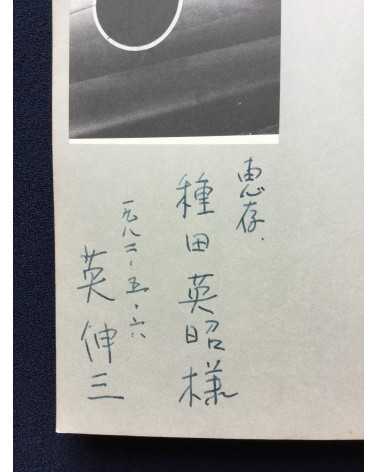 惠存.
種田英昭様
一九八二・五・六
英伸三